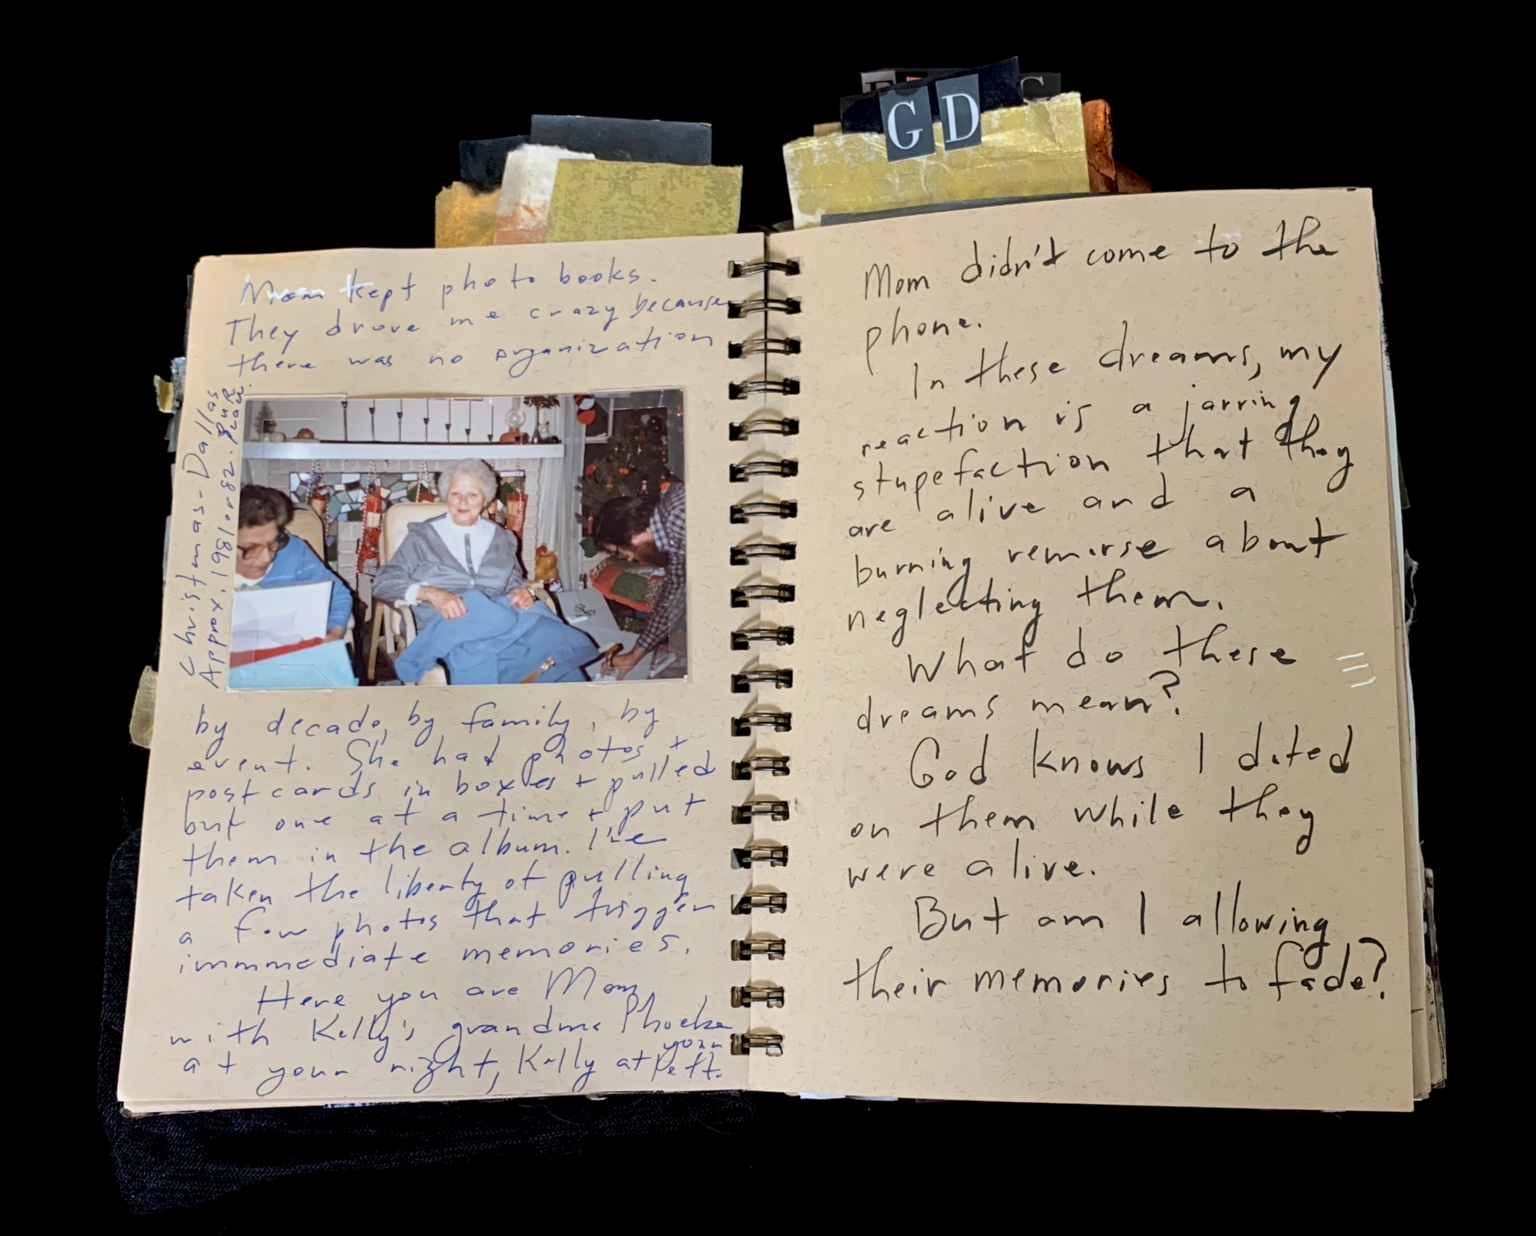 G D
Mom kept photo books.
They drove me crazy because
there was no organization
Christmas - Dallas
Approx. 1981 or 82. our place.
by decade, by family, by
event. She had photos +
postcards in boxes + pulled
out one at a time + put
them in the album. I've
taken the liberty of pulling
a few photos that trigger
immmediate memories.
Here you are Mom,
with Kelly's grandma Phoebe
at your right, Kelly at your left.
Mom didn't come to the
phone.
In these dreams, my
reaction is a jarring
stupefaction that they
are alive and a
burning remorse about
neglecting them.
What do these
dreams mean?
God knows I doted
on them while they
were alive.
But am I allowing
their memories to fade?